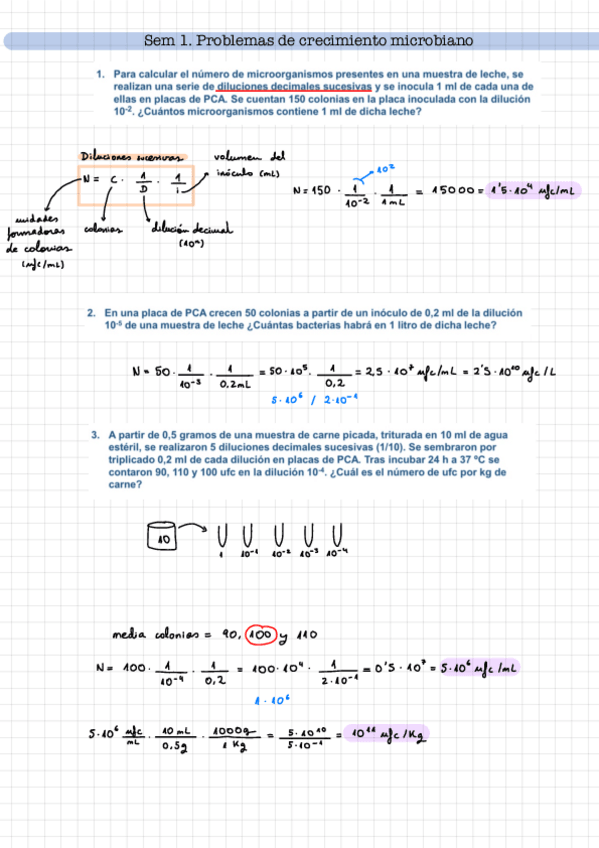 Sem 1. Problemas de crecimiento microbiano
1. Para calcular el número de microorganismos presentes en una muestra de leche, se
realizan una serie de diluciones decimales sucesivas y se inocula 1 ml de cada una de
ellas en placas de PCA. Se cuentan 150 colonias en la placa inoculada con la dilución
10⁻². ¿Cuántos microorganismos contiene 1 ml de dicha leche?
Diluciones sucesivas
N = C · 1/D · 1/i
volumen del
inóculo (mL)
unidades
formadoras
de colonias
(ufc/mL)
colonias
dilución decimal
(10ⁿ)
10²
N = 150 · 1/10⁻² · 1/1 mL = 15000 = 1'5·10⁴ ufc/mL
2. En una placa de PCA crecen 50 colonias a partir de un inóculo de 0,2 ml de la dilución
10⁻⁵ de una muestra de leche ¿Cuántas bacterias habrá en 1 litro de dicha leche?
N = 50 · 1/10⁻⁵ · 1/0,2 mL = 50·10⁵ · 1/0,2 = 2,5 · 10⁷ ufc/mL = 2'5·10¹⁰ ufc/L
5·10⁶ / 2·10⁻¹
3. A partir de 0,5 gramos de una muestra de carne picada, triturada en 10 ml de agua
estéril, se realizaron 5 diluciones decimales sucesivas (1/10). Se sembraron por
triplicado 0,2 ml de cada dilución en placas de PCA. Tras incubar 24 h a 37 ºC se
contaron 90, 110 y 100 ufc en la dilución 10⁻⁴. ¿Cuál es el número de ufc por kg de
carne?
10
1 10⁻¹ 10⁻² 10⁻³ 10⁻⁴
media colonias = 90, 100 y 110
N = 100 · 1/10⁻⁴ · 1/0,2 = 100·10⁴ · 1/2·10⁻¹ = 0'5 · 10⁷ = 5·10⁶ ufc/mL
1·10⁶
5·10⁶ ufc/mL · 10 mL/0,5g · 1000g/1 Kg = 5·10¹⁰/5·10⁻¹ = 10¹¹ ufc/Kg